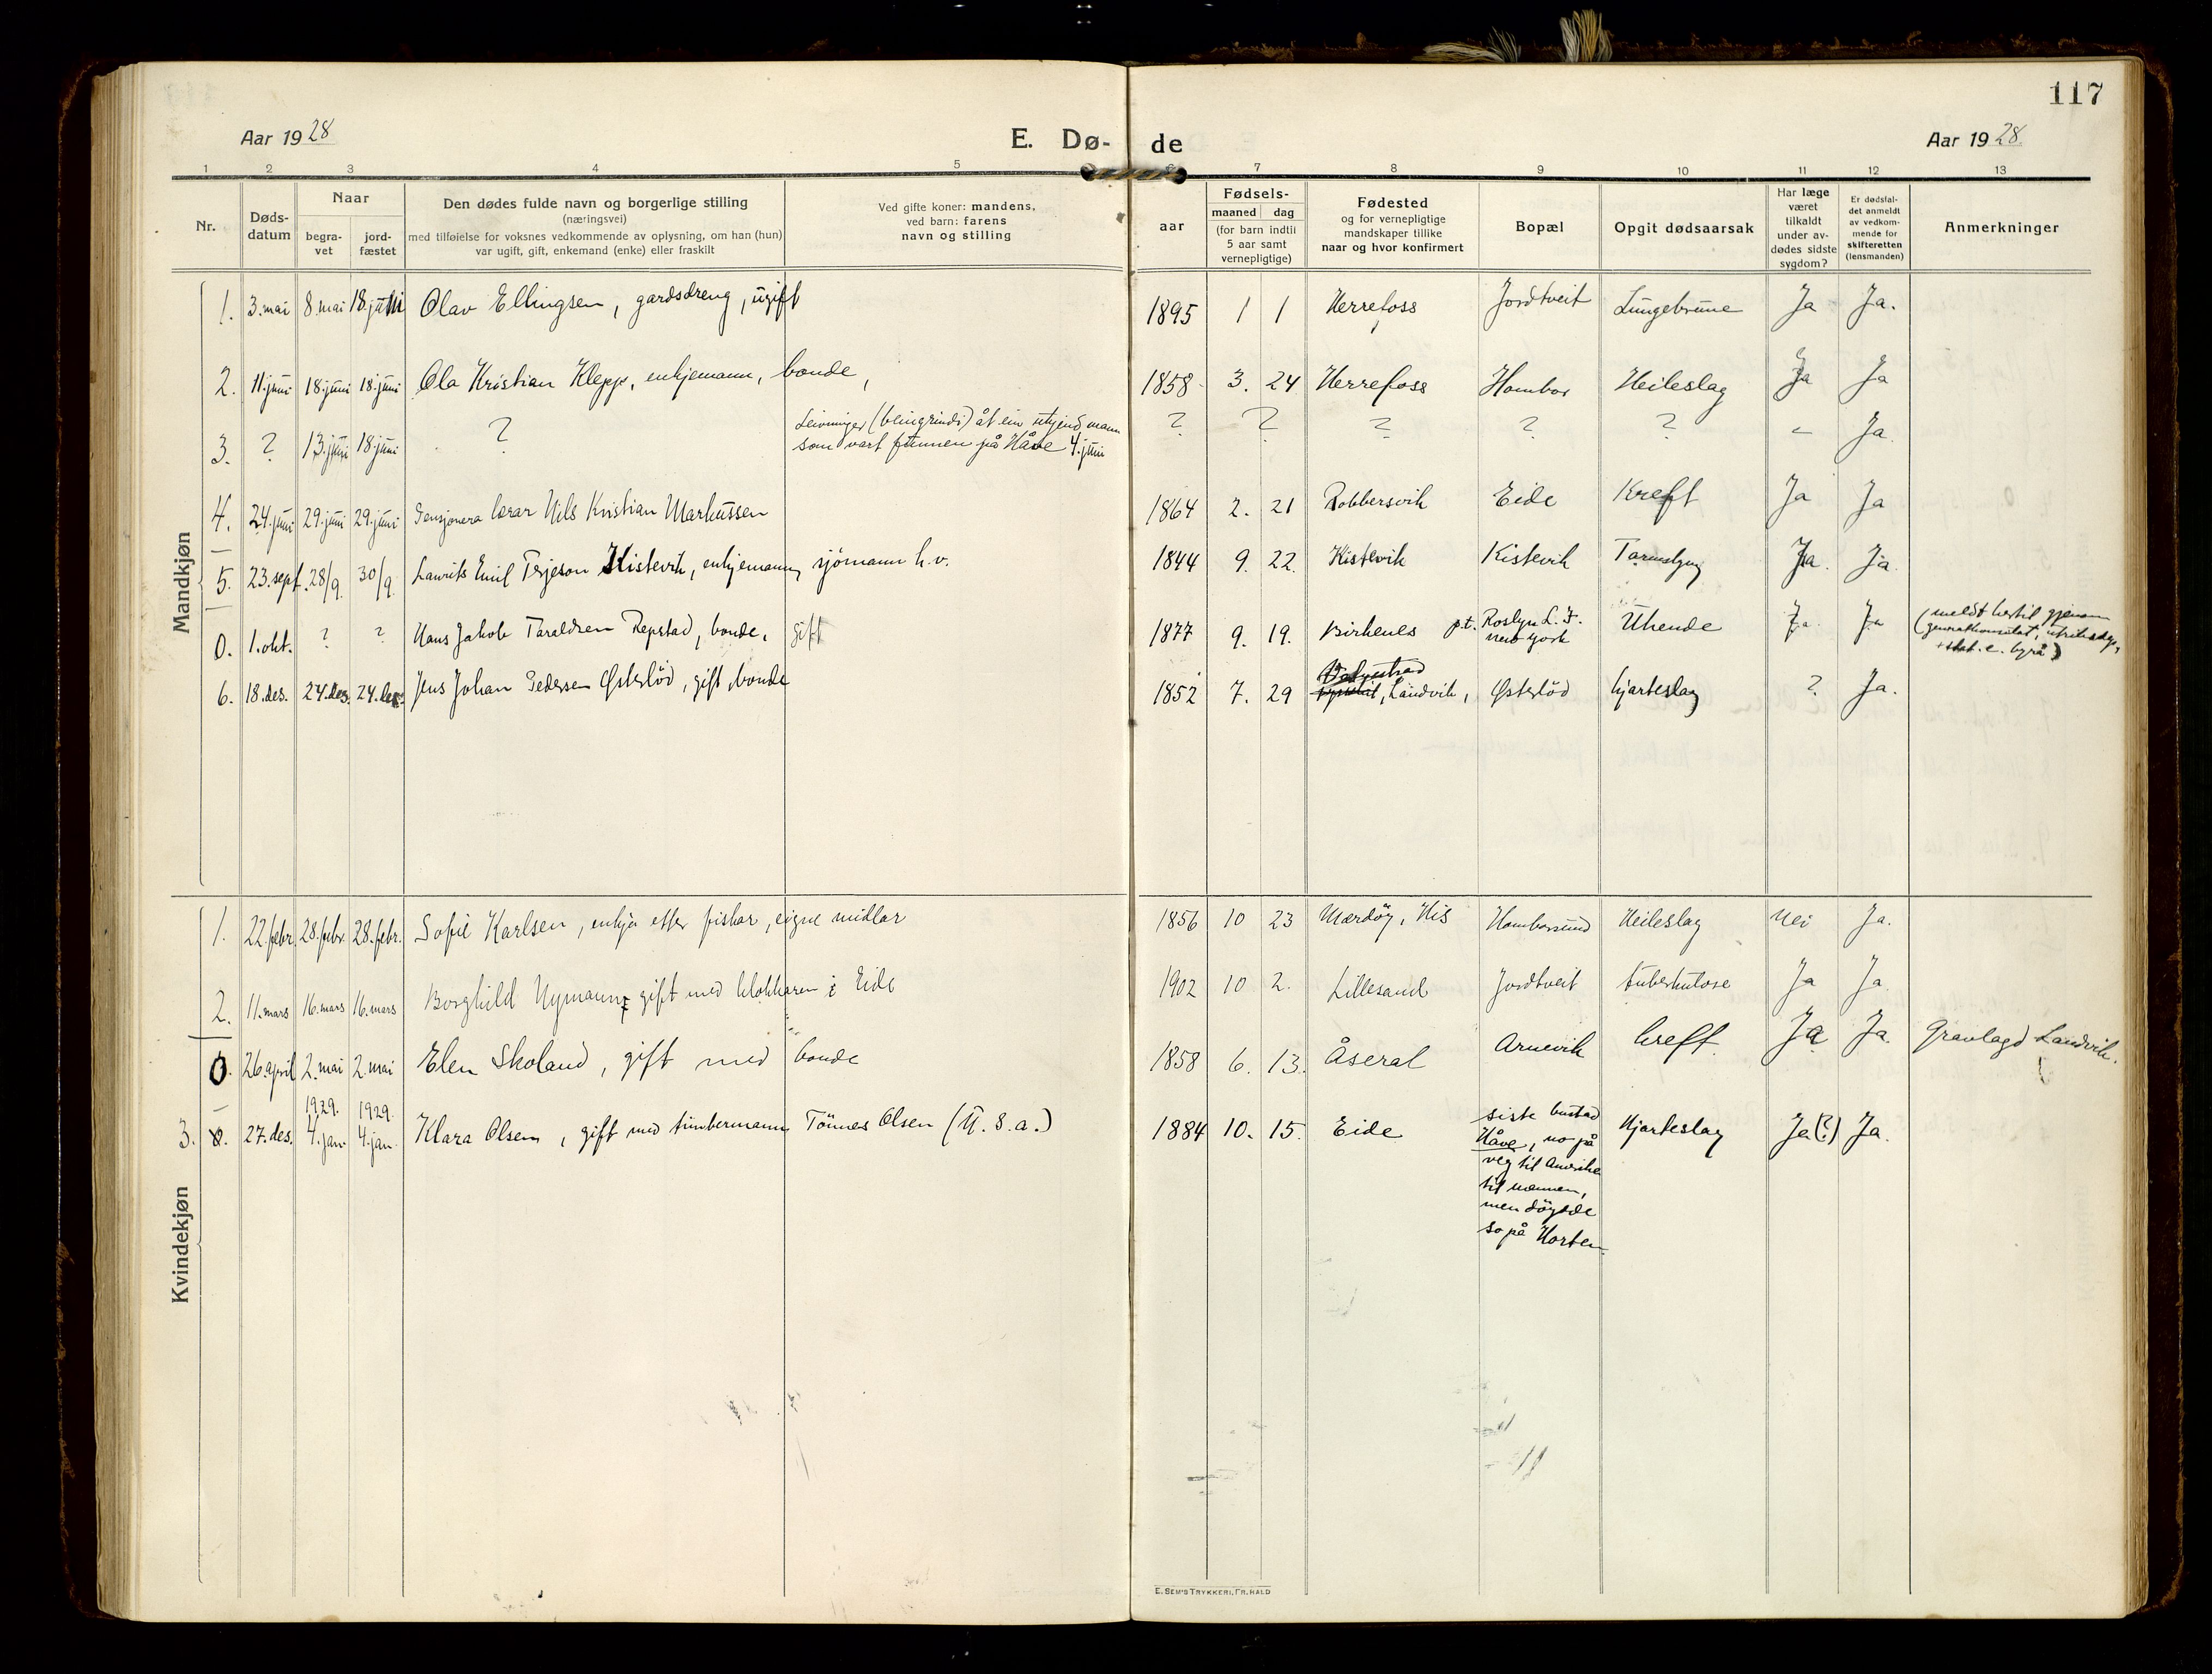 117
Aar 1928 E. Dø- de Aar 1928.
1 2 3 4 5 6 7 8 9 10 11 12 13
Nr.
Døds-
datum
Naar
begra-
vet
jord-
fæstet
Den dødes fulde navn og borgerlige stilling
(næringsvei)
med tilføielse for voksnes vedkommende av oplysning, om han (hun)
var ugift, gift, enkemand (enke) eller fraskilt
Ved gifte koner: mandens,
ved barn: farens
navn og stilling
Fødsels-
aar
maaned dag
(for barn indtil
5 aar samt
vernepligtige)
Fødested
og for vernepligtige
mandskaper tillike
naar og hvor konfirmert
Bopæl
Opgit dødsaarsak
Har læge
været
tilkaldt
under av-
dødes sidste
sygdom?
Er dødsfal-
det anmeldt
av vedkom-
mende for
skifteretten
(lensmanden)
Anmerkninger
Mandkjøn
1. 3. mai 8. mai 18. juni Olav Ellingsen, gardsdreng, ugift 1895 1 1 Herrefoss Jordtveit Lungebrune Ja Ja.
2. 11. juni 18. juni 18. juni Ola Kristian Klepp, enkjemann, bonde, 1858 3. 24 Herrefoss Hombor Heileslag Ja Ja
3. ? 13. juni 18. juni ? Leivninger (beingrindi) åt ein ukjend mann
som vart funnen på Håve 4. juni ? ? ? ? ? – Ja
4. 24. juni 29. juni 29. juni Pensjonera lærar Nils Kristian Markussen 1864 2. 21 Robbersvik Eide Kreft Ja Ja
5. 23. sept. 28/9. 30/9. Laurits Emil Terjeson Kistevik, enkjemann, sjömann h.v. 1844 9. 22. Kistevik Kistevik Ja. Ja.
0. 1. okt. ? ? Hans Jakob Taraldsen Repstad, bonde, gift 1877 9. 19. Birkenes p.t. Roslyn L. I.
New York Ukende Ja. Ja (meldt hertil gjenom
generalkonsulat, utriksdep,
+ stat. c. byrå)
6. 18. des. 24. des. 24. des. Jens Johan Pedersen Østerlöd, gift, bonde 1852 7. 29 Landvik, Østerlöd hjarteslag ? Ja.
Kvindekjøn
1. 22. febr. 28. febr. 28. febr. Sofie Karlsen, enkja etter fiskar, eigne midlar 1856 10 23 Mærdöy, His Hombersund Heileslag Nei Ja.
2. 11. mars 16. mars 16. mars Borghild Nymann, gift med klokkaren i Eide 1902 10 2. Lillesand Jordtveit tuberkulose Ja Ja.
0. 26. april 2. mai 2. mai Elen Skoland, gift med bonde 1858 6. 13. Åseral Arnevik kreft. Ja Ja. Gravlagd Landvik.
3. 27. des. 1929. 4. jan. 1929. 4. jan. Klara Olsen, gift med timbermann Tönnes Olsen (U.S.a.) 1884 10. 15. Eide siste bustad
Håve, no på
veg til Amerika
til mannen,
men döydde
so på Horten Hjarteslag Ja(?) Ja.
E. SEM'S TRYKKERI, FR. HALD